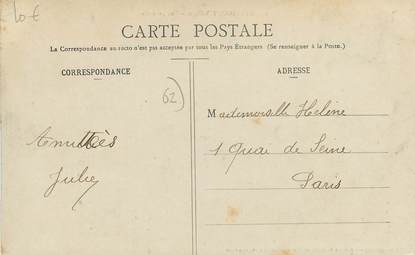 20 €
CARTE POSTALE
La Correspondance au recto n'est pas acceptée par tous les Pays Etrangers (Se renseigner à la Poste.)
CORRESPONDANCE
62
Amitiés
Julie
ADRESSE
Mademoiselle Hélène
1 Quai de Seine
Paris